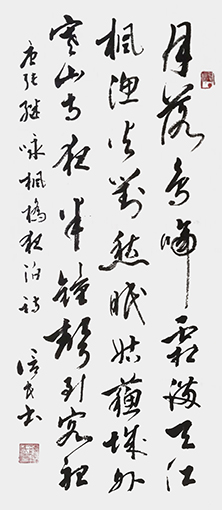 月落烏啼霜滿天江
楓漁火對愁眠姑蘇城外
寒山寺夜半鐘聲到客船
唐張繼咏楓橋夜泊詩